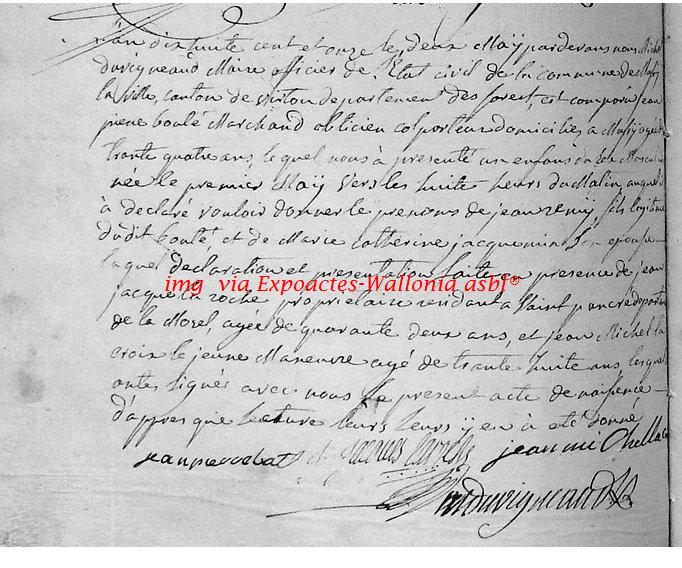 L'an dix huite cent et onze le deux Maÿ pardevans nous Michel
duvigneaud Maire officier de l'Etat civil de la commune de
la ville, canton de virton departement des forest, est comparu jean
piere boulé Marchand obticien colporteur domicilies a agé de
trante quatre ans, lequel nous à presenté un enfans du
née le premier Maÿ vers les huite heurs du Matin, auquel
à declaré vouloir donner le prenoms de jean remÿ, fils legitime
dudit boulé, et de Marie Catherine jacquemin Son epouse
laquel declaration et presentation faite en presence de jean
img via Expoactes-Wallonia asbl®
jacque la roche proprietaire residant a Saint pancré departem
de la Mosel, agée de quarante deux ans, et jean Michel la
croix le jeune Maneuvre agé de trante huite ans, lesquel
ontes signés avec nous le present acte de naisence
d'appres que Lecture leurs ÿ en à eté Donné
jean jacques laroche jean michel la
mduvigneaud